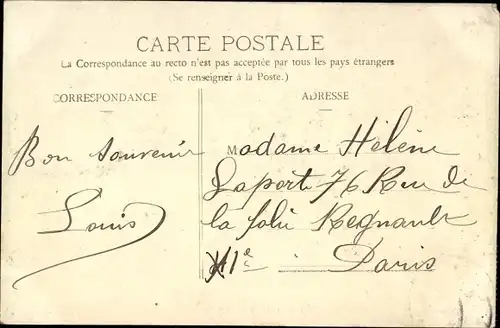 CARTE POSTALE
La Correspondance au recto n'est pas acceptée par tous les pays étrangers
(Se renseigner à la Poste.)
CORRESPONDANCE
ADRESSE
Bon Souvenir
Louis
Madame Hélène
Laporte 76 Rue de
la folie Regnault
XIe Paris